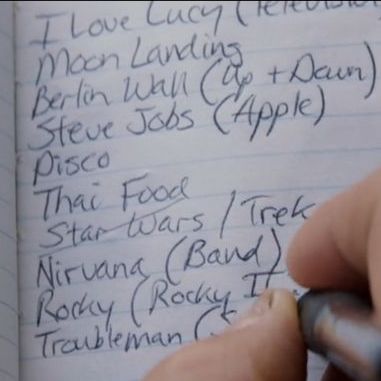 I Love Lucy (Television
Moon Landing
Berlin Wall (Up + Down)
Steve Jobs (Apple)
Disco
Thai Food
Star Wars / Trek
Nirvana (Band)
Rocky (Rocky II
Troubleman (